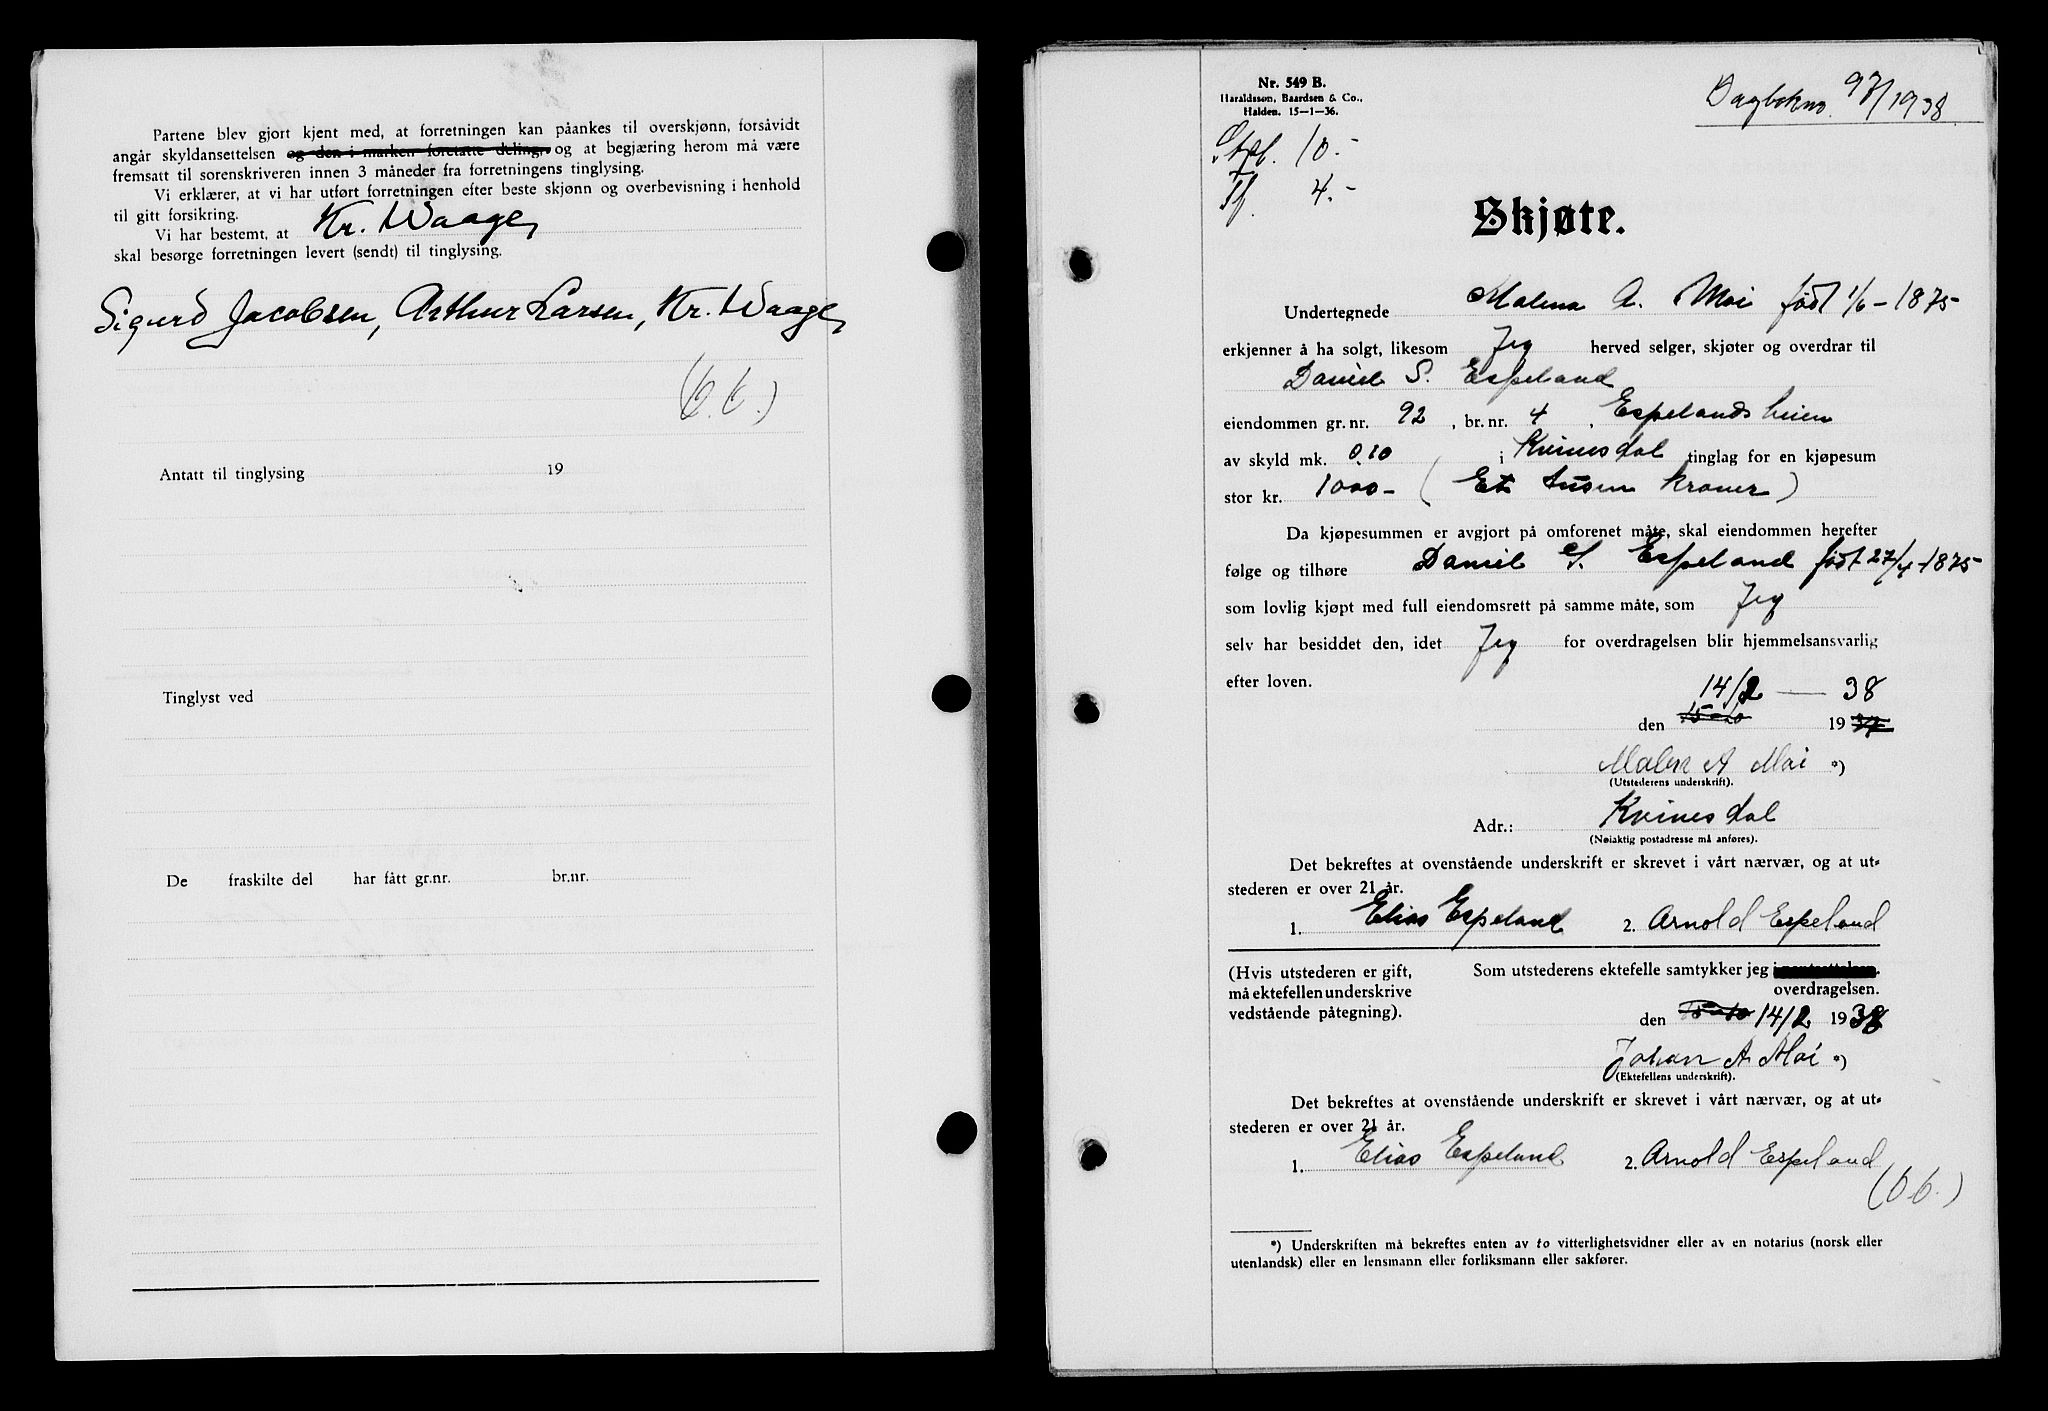 Partene blev gjort kjent med, at forretningen kan påankes til overskjønn, forsåvidt
angår skyldansettelsen og den i marken foretatte deling, og at begjæring herom må være
fremsatt til sorenskriveren innen 3 måneder fra forretningens tinglysing.
Vi erklærer, at vi har utført forretningen efter beste skjønn og overbevisning i henhold
til gitt forsikring.
Vi har bestemt, at Kr. Waage,
skal besørge forretningen levert (sendt) til tinglysing.
Sigurd Jacobsen, Arthur Larsen, Kr. Waage,
Antatt til tinglysing 19
Tinglyst ved
De fraskilte del har fått gr.nr. br.nr.
Nr. 549 B.
Haraldssøn, Baardsen & Co.,
Halden. 15—1—36.
Dagboknr. 97/1938
Stpl. 10.-
Tf. 4.-
Skjøte.
Undertegnede Malena A. Moi født 1/6-1875
erkjenner å ha solgt, likesom Jeg herved selger, skjøter og overdrar til
Daniel S. Espeland
eiendommen gr. nr. 92, br. nr. 4, Espelandsheien
av skyld mk. 0,10 i Kvinesdal tinglag for en kjøpesum
stor kr. 1000- (Et tusen kroner)
Da kjøpesummen er avgjort på omforenet måte, skal eiendommen herefter
følge og tilhøre Daniel S. Espeland født 27/4-1875
som lovlig kjøpt med full eiendomsrett på samme måte, som Jeg
selv har besiddet den, idet Jeg for overdragelsen blir hjemmelsansvarlig
efter loven.
14/2 — 38
den 15-10 19 37
Malen A Moi *)
(Utstederens underskrift).
Adr.: Kvinesdal
(Nøiaktig postadresse må anføres).
Det bekreftes at ovenstående underskrift er skrevet i vårt nærvær, og at ut-
stederen er over 21 år.
1. Elias Espeland 2. Arnold Espeland
(Hvis utstederen er gift, Som utstederens ektefelle samtykker jeg i
må ektefellen underskrive overdragelsen.
vedstående påtegning).
den 15-10 14/2 1938
Johan A Moi *)
(Ektefellens underskrift).
Det bekreftes at ovenstående underskrift er skrevet i vårt nærvær, og at ut-
stederen er over 21 år.
1. Elias Espeland 2. Arnold Espeland
*) Underskriften må bekreftes enten av to vitterlighetsvidner eller av en notarius (norsk eller
utenlandsk) eller en lensmann eller forliksmann eller sakfører.